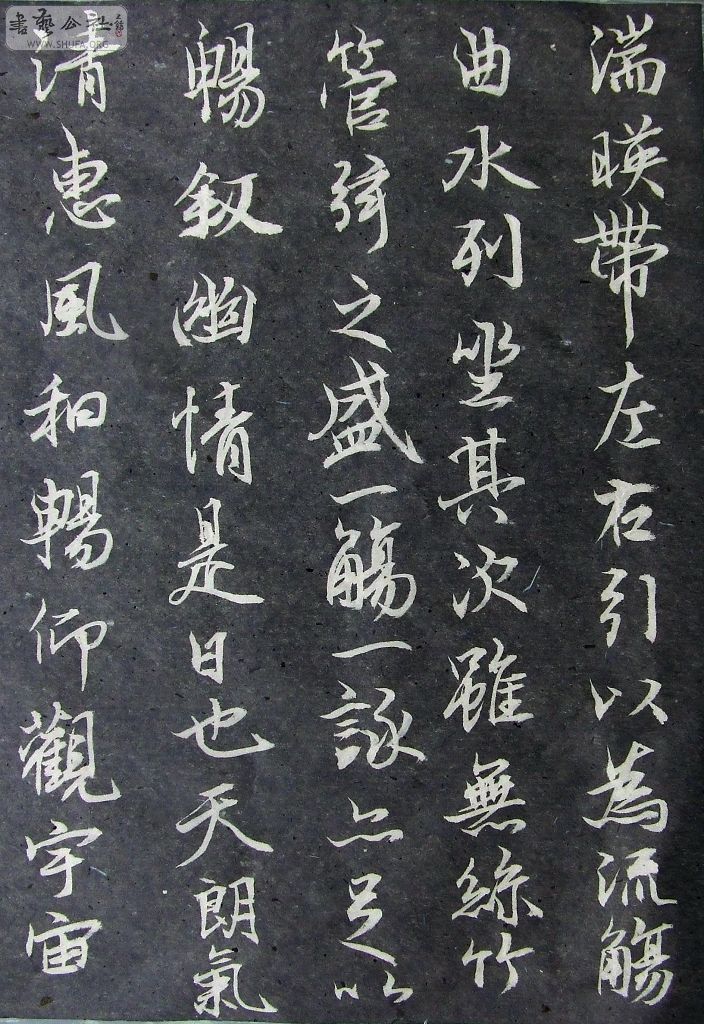 湍暎帶左右引以為流觴
曲水列坐其次雖無絲竹
管弦之盛一觴一詠亦足以
暢叙幽情是日也天朗氣
清惠風和暢仰觀宇宙
書藝公社
WWW.SHUFA.ORG